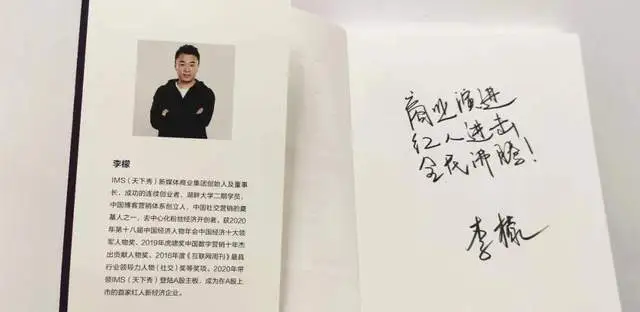 李檬
IMS（天下秀）新媒体商业集团创始人及董事
长，成功的连续创业者，湖畔大学二期学员，
中国博客营销体系创立人，中国社交营销的奠
基人之一，去中心化粉丝经济开创者。获2020
年第十八届中国经济人物年会中国经济十大领
军人物奖、2019年虎啸奖中国数字营销十年杰
出贡献人物奖、2016年度《互联网周刊》最具
行业领导力人物（社交）奖等奖项。2020年带
领IMS（天下秀）登陆A股主板，成为在A股上
市的首家红人新经济企业。
商业演进
红人进击
全民沸腾！
李檬